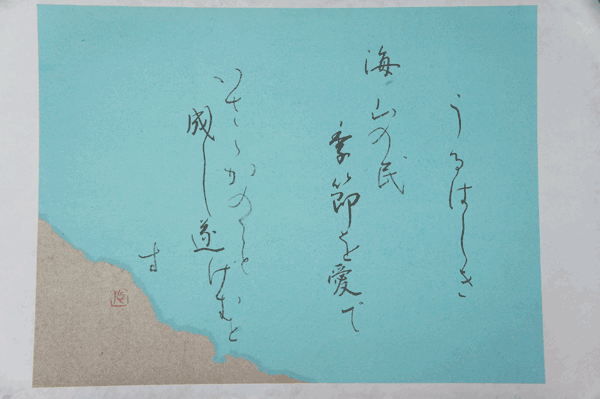 うるはしき
海山の民
季節を愛で
いさゝかのこと
成し遂げむと
す